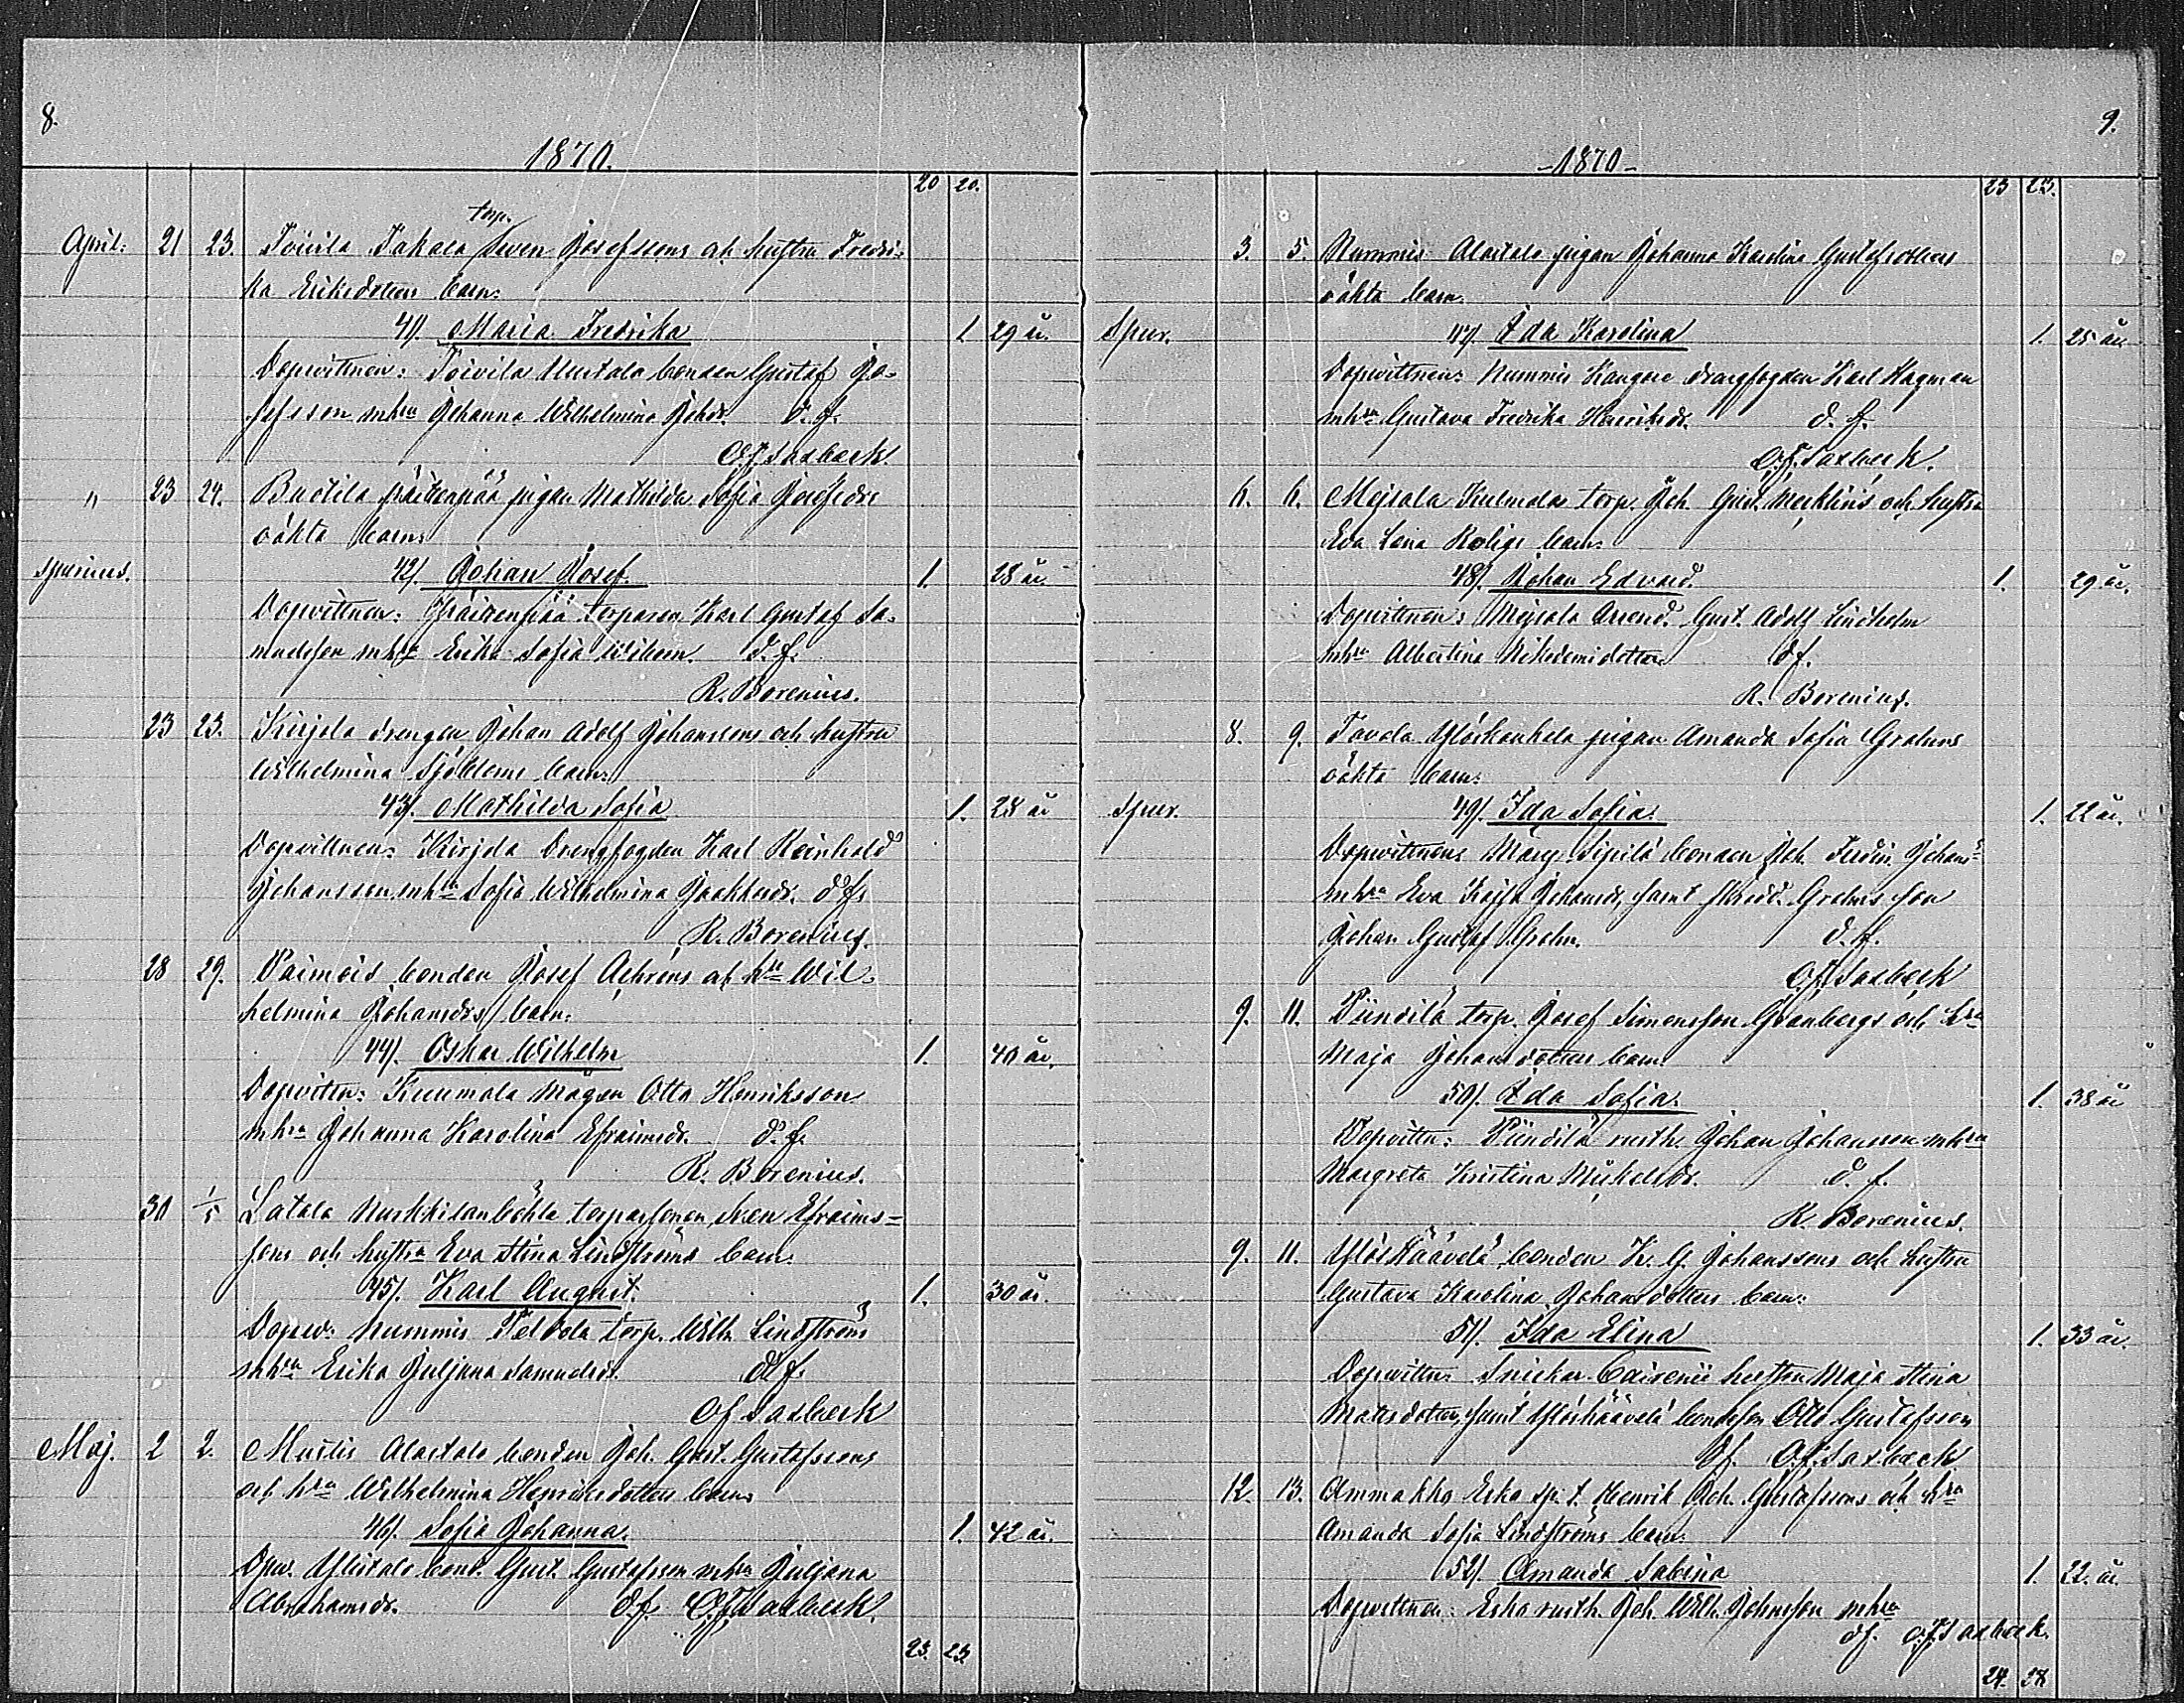 8.
1870.
20 20.
torp.
April: 21 23. Toivila Takala Sven Josefssons och hustru Fredri-
ka Eriksdotters barn:
41/. Maria Fredrika 1 29 år.
Dopvittnen: Toivila Uusitalo bonden Gustaf Jo-
sefsson mhru Johanna Wilhelmina Johsdr. d. f.
O.F. Saxbeck.
" 23 24. pigan Mathilda Sofia Josefsdrs
oäkta barn:
spurius. 42/. Johan Josef 1. 28 år.
Dopvittnen: torparen Karl Gustaf Sa-
muelsson mhru Erika Sofia d. f.
R. Borenius.
23 23. Kirjola drengen Johan Adolf Johanssons och hustru
Wilhelmina Sjöbloms barn:
43/. Mathilda Sofia 1. 28 år
Dopvittnen: Kirjola drengfogden Karl Reinhold
Johansson mhru Sofia Wilhelmina d. f.
R. Borenius.
28 29. Vaimois bonden Josef och hru Wil-
helmina Johansdrs barn:
44/. Oskar Wilhelm 1. 40 år.
Dopvittn: Kuumola mågen Otto Henriksson
mhru Johanna Karolina Efraimsdr. d. f.
R. Borenius.
30 1/5 torparsonen Sven Efraims-
sons och hustru Eva Stina Lindströms barn:
45/. Karl August. 1. 30 år.
Dopv: Nummis torp. Wilh. Lindström
mhru Erika Juljana Samuelsdr. d. f.
O.F. Saxbeck
Maj. 2 2. Mustis Alastalo bonden Joh. Gust. Gustafssons
och hru Wilhelmina Henriksdotters barn
46/. Sofia Johanna. 1. 42 år.
Dpv. Ylistalo bond. Gust. Gustafsson mhru Juljana
Abrahamsdr. d. f. O.F. Saxbeck.
23. 23.
9.
-1870-
23 23.
3. 5. Nummis Alastalo pigan Johanna Karolina Gustafsdotters
oäkta barn
Spur. 47/. Ida Karolina 1. 25 år.
Dopvittnen: Nummis Kangare drengfogden Karl Hagman
mhru Gustava Fredrika Henriksdr. d. f.
O.F. Saxbeck.
6. 6. Meisala torp. Joh. Gust. Mecklins och hustru
Eva Lena Roligs barn:
48/. Johan Edvard. 1. 29 år.
Dopvittnen: Meisala Arrend. Gust. Adolf Lindholm
mhru Albertina Nikodemidotter d. f.
R. Borenius.
8. 9. pigan Amanda Sofia Grolms
oäkta barn:
Spur. 49/. Ida Sofia. 1. 22 år.
Dopvittnen: Sipilä bonden Joh. Ferdin. Johans-
mhru Eva Kajsa Johansdr, samt skrädd. Grolms son
Johan Gustaf Grolm. d. f.
O.F. Saxbeck
9. 11. Piintilä torp. Josef Simonsson Granbergs och hru
Maja Johansdotters barn:
50/. Ida Sofia. 1. 38 år
Dopvittn: Piintilä rusth. Johan Johansson mhru
Margreta Kristina Mickelsdr. d. f.
R. Borenius.
9. 11. bonden K. G. Johanssons och hustru
Gustava Karolina Johansdotters barn:
51/. Ida Elina 1. 33 år.
Dopvittn: Snickar hustru Maja Stina
Matsdotter, samt bondson Otto Gustafsson
d. f. O.F. Saxbeck
12. 13. Esko sp. t. Henrik Joh. Gustafssons och hru
Amanda Sofia Lindströms barn:
52/. Amanda Sabina 1. 22. år.
Dopvittnen: Esko rusth. Joh. Wilh. Johansson mhru
d. f. O.F. Saxbeck.
24. 28